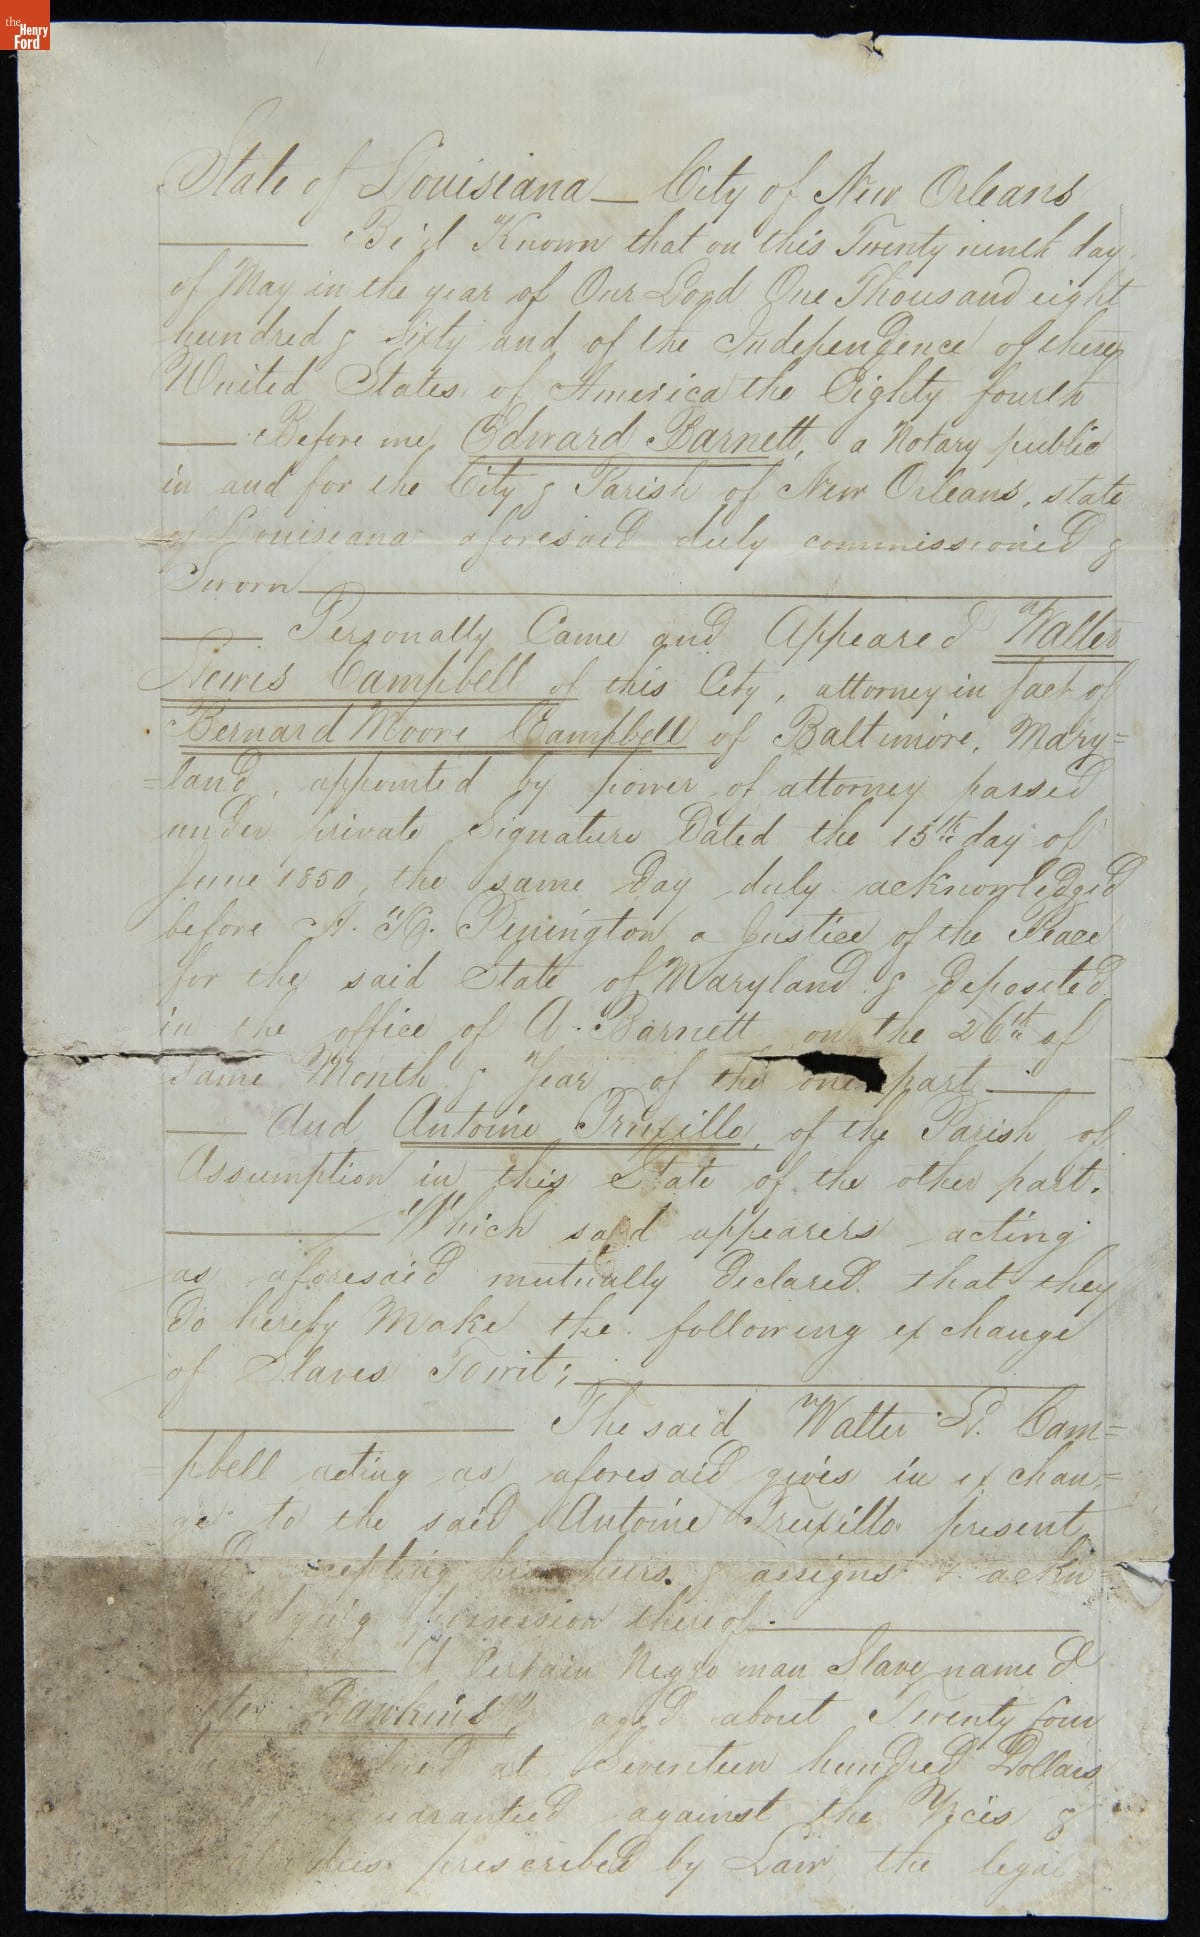 the
Henry
Ford
State of Louisiana — City of New Orleans
Be it Known that on this Twenty ninth day
of May in the year of Our Lord One Thousand eight
hundred & Sixty and of the Independence of these
United States of America the Eighty fourth
Before me, Edward Barnett, a Notary public
in and for the City & Parish of New Orleans, state
of Louisiana aforesaid duly commissioned &
Sworn
Personally Came and Appeared Walter
Lewis Campbell of this City, attorney in fact of
Bernard Moore Campbell of Baltimore, Mary=
=land, appointed by power of attorney passed
under private Signature Dated the 15th day of
June 1850, the same Day duly acknowledged
before A. H. Penington a Justice of the Peace
for the said State of Maryland & Deposited
in the office of A. Barnett on the 26th of
same Month & Year, of the one part
And Antoine Truxillo, of the Parish of
Assumption in this State of the other part.
Which said appearers acting
as aforesaid mutually Declared that they
Do hereby Make the following exchange
of Slaves Towit;
The said Walter L. Cam=
=pbell acting as aforesaid gives in exchan=
ge to the said Antoine Truxillo present
accepting his heirs & assigns & ackn=
possession thereof.
A Certain Negro man Slave named
Dawkins", aged about Twenty four
at Seventeen hundred Dollars
guarantied against the Vices &
prescribed by Law, the legal